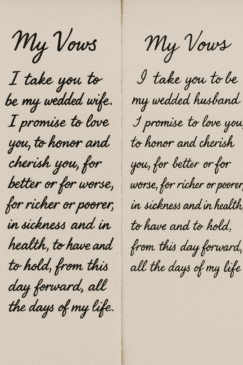 My Vows
I take you to
be my wedded wife.
I promise to love
you, to honor and
cherish you, for
better or for worse,
for richer or poorer,
in sickness and in
health, to have and
to hold, from this
day forward, all
the days of my life.
My Vows
I take you to be
my wedded husband
I promise to love you
to honor and cherish
you, for better or for
worse, for richer or poorer,
in sickness and in health,
to have and to hold,
from this day forward,
all the days of my life